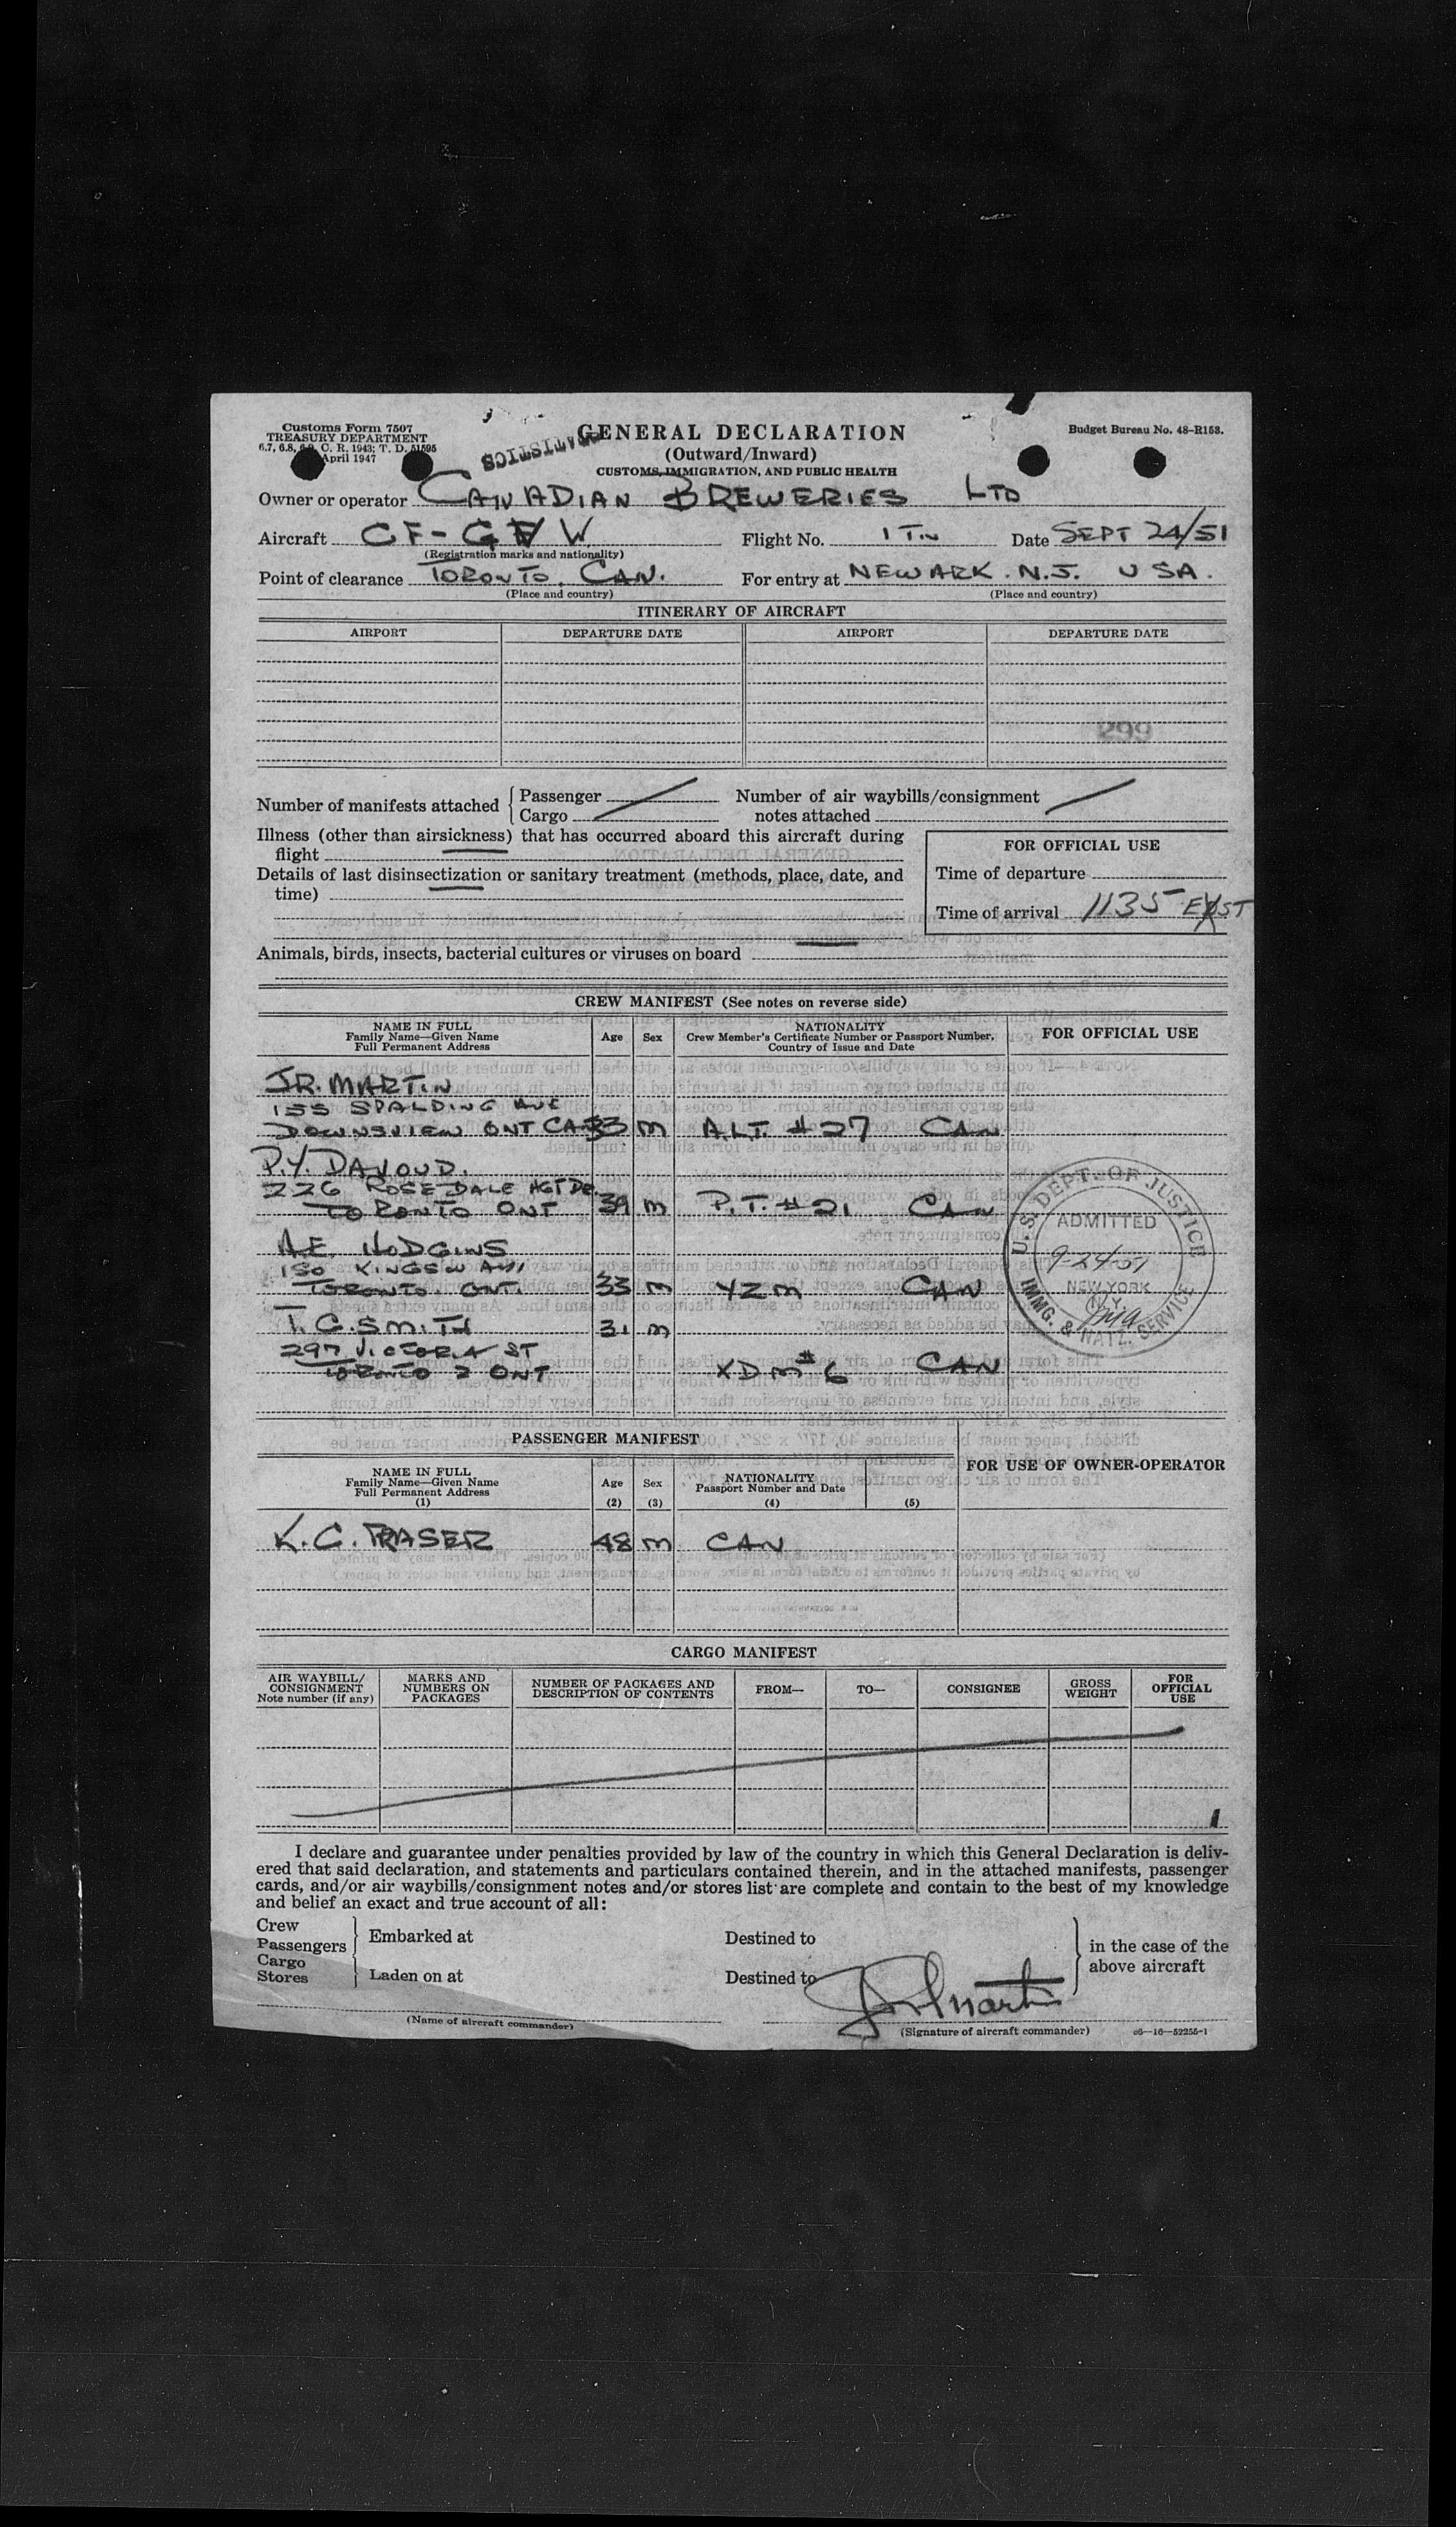 Customs Form 7507
TREASURY DEPARTMENT
6.7, 6.8, 6.9, C. R. 1943; T. D. 51595
April 1947
STATISTICS
GENERAL DECLARATION
(Outward/Inward)
CUSTOMS, IMMIGRATION, AND PUBLIC HEALTH
Budget Bureau No. 48-R158.
Owner or operator CANADIAN BREWERIES LTD
Aircraft CF-G W Flight No. Date SEPT 24/51
(Registration marks and nationality)
Point of clearance TORONTO, CAN. For entry at NEWARK. N.J. USA.
(Place and country) (Place and country)
ITINERARY OF AIRCRAFT
AIRPORT DEPARTURE DATE AIRPORT DEPARTURE DATE
299
Number of manifests attached { Passenger
Cargo
Number of air waybills/consignment
notes attached
Illness (other than airsickness) that has occurred aboard this aircraft during
flight
Details of last disinsectization or sanitary treatment (methods, place, date, and
time)
FOR OFFICIAL USE
Time of departure
Time of arrival 1135 EST
Animals, birds, insects, bacterial cultures or viruses on board
CREW MANIFEST (See notes on reverse side)
NAME IN FULL
Family Name—Given Name
Full Permanent Address
Age Sex
NATIONALITY
Crew Member's Certificate Number or Passport Number,
Country of Issue and Date
FOR OFFICIAL USE
J.R. MARTIN
155 SPALDING AVE
DOWNSVIEW ONT CAN 33 M A.L.T. #27 CAN
P.Y. DAVOUD.
226 ROSEDALE HGT DR.
TORONTO ONT 39 M P.T. #21 CAN
A.E. HODGINS
150 KINGSW AVE
TORONTO. ONT. 33 M YZM CAN
T. G. SMITH 31 M
297 VICTORIA ST
TORONTO 2 ONT XDM #6 CAN
U. S. DEPT. OF JUSTICE
ADMITTED
9-24-51
NEW YORK
N. Y.
IMMG. & NATZ. SERVICE
PASSENGER MANIFEST
NAME IN FULL
Family Name—Given Name
Full Permanent Address
(1)
Age
(2)
Sex
(3)
NATIONALITY
Passport Number and Date
(4) (5)
FOR USE OF OWNER-OPERATOR
K. C. FRASER 48 M CAN
CARGO MANIFEST
AIR WAYBILL/
CONSIGNMENT
Note number (if any)
MARKS AND
NUMBERS ON
PACKAGES
NUMBER OF PACKAGES AND
DESCRIPTION OF CONTENTS
FROM— TO— CONSIGNEE
GROSS
WEIGHT
FOR
OFFICIAL
USE
1
I declare and guarantee under penalties provided by law of the country in which this General Declaration is deliv-
ered that said declaration, and statements and particulars contained therein, and in the attached manifests, passenger
cards, and/or air waybills/consignment notes and/or stores list are complete and contain to the best of my knowledge
and belief an exact and true account of all:
Crew
Passengers
Cargo
Stores
Embarked at Destined to
Laden on at Destined to
in the case of the
above aircraft
J R Martin
(Name of aircraft commander) (Signature of aircraft commander) c6—16—52255-1